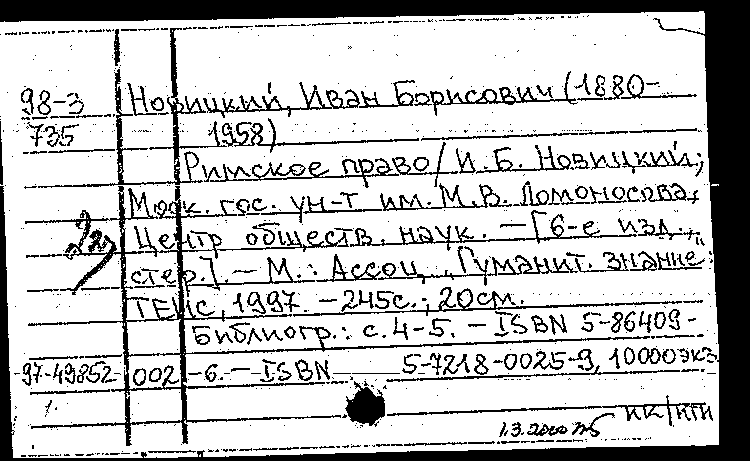 98-3 Новицкий, Иван Борисович (1880-
735 1958)
Римское право / И.Б. Новицкий;
Моск. гос. ун-т им. М.В. Ломоносова,
Центр обществ. наук. — [6-е изд.,
стер.]. — М.: Ассоц. „Гуманит. знание":
ТЕИС, 1997. - 245с.; 20см.
Библиогр.: с. 4-5. — ISBN 5-86409-
97-49852 002-6. — ISBN 5-7218-0025-9, 10000экз.